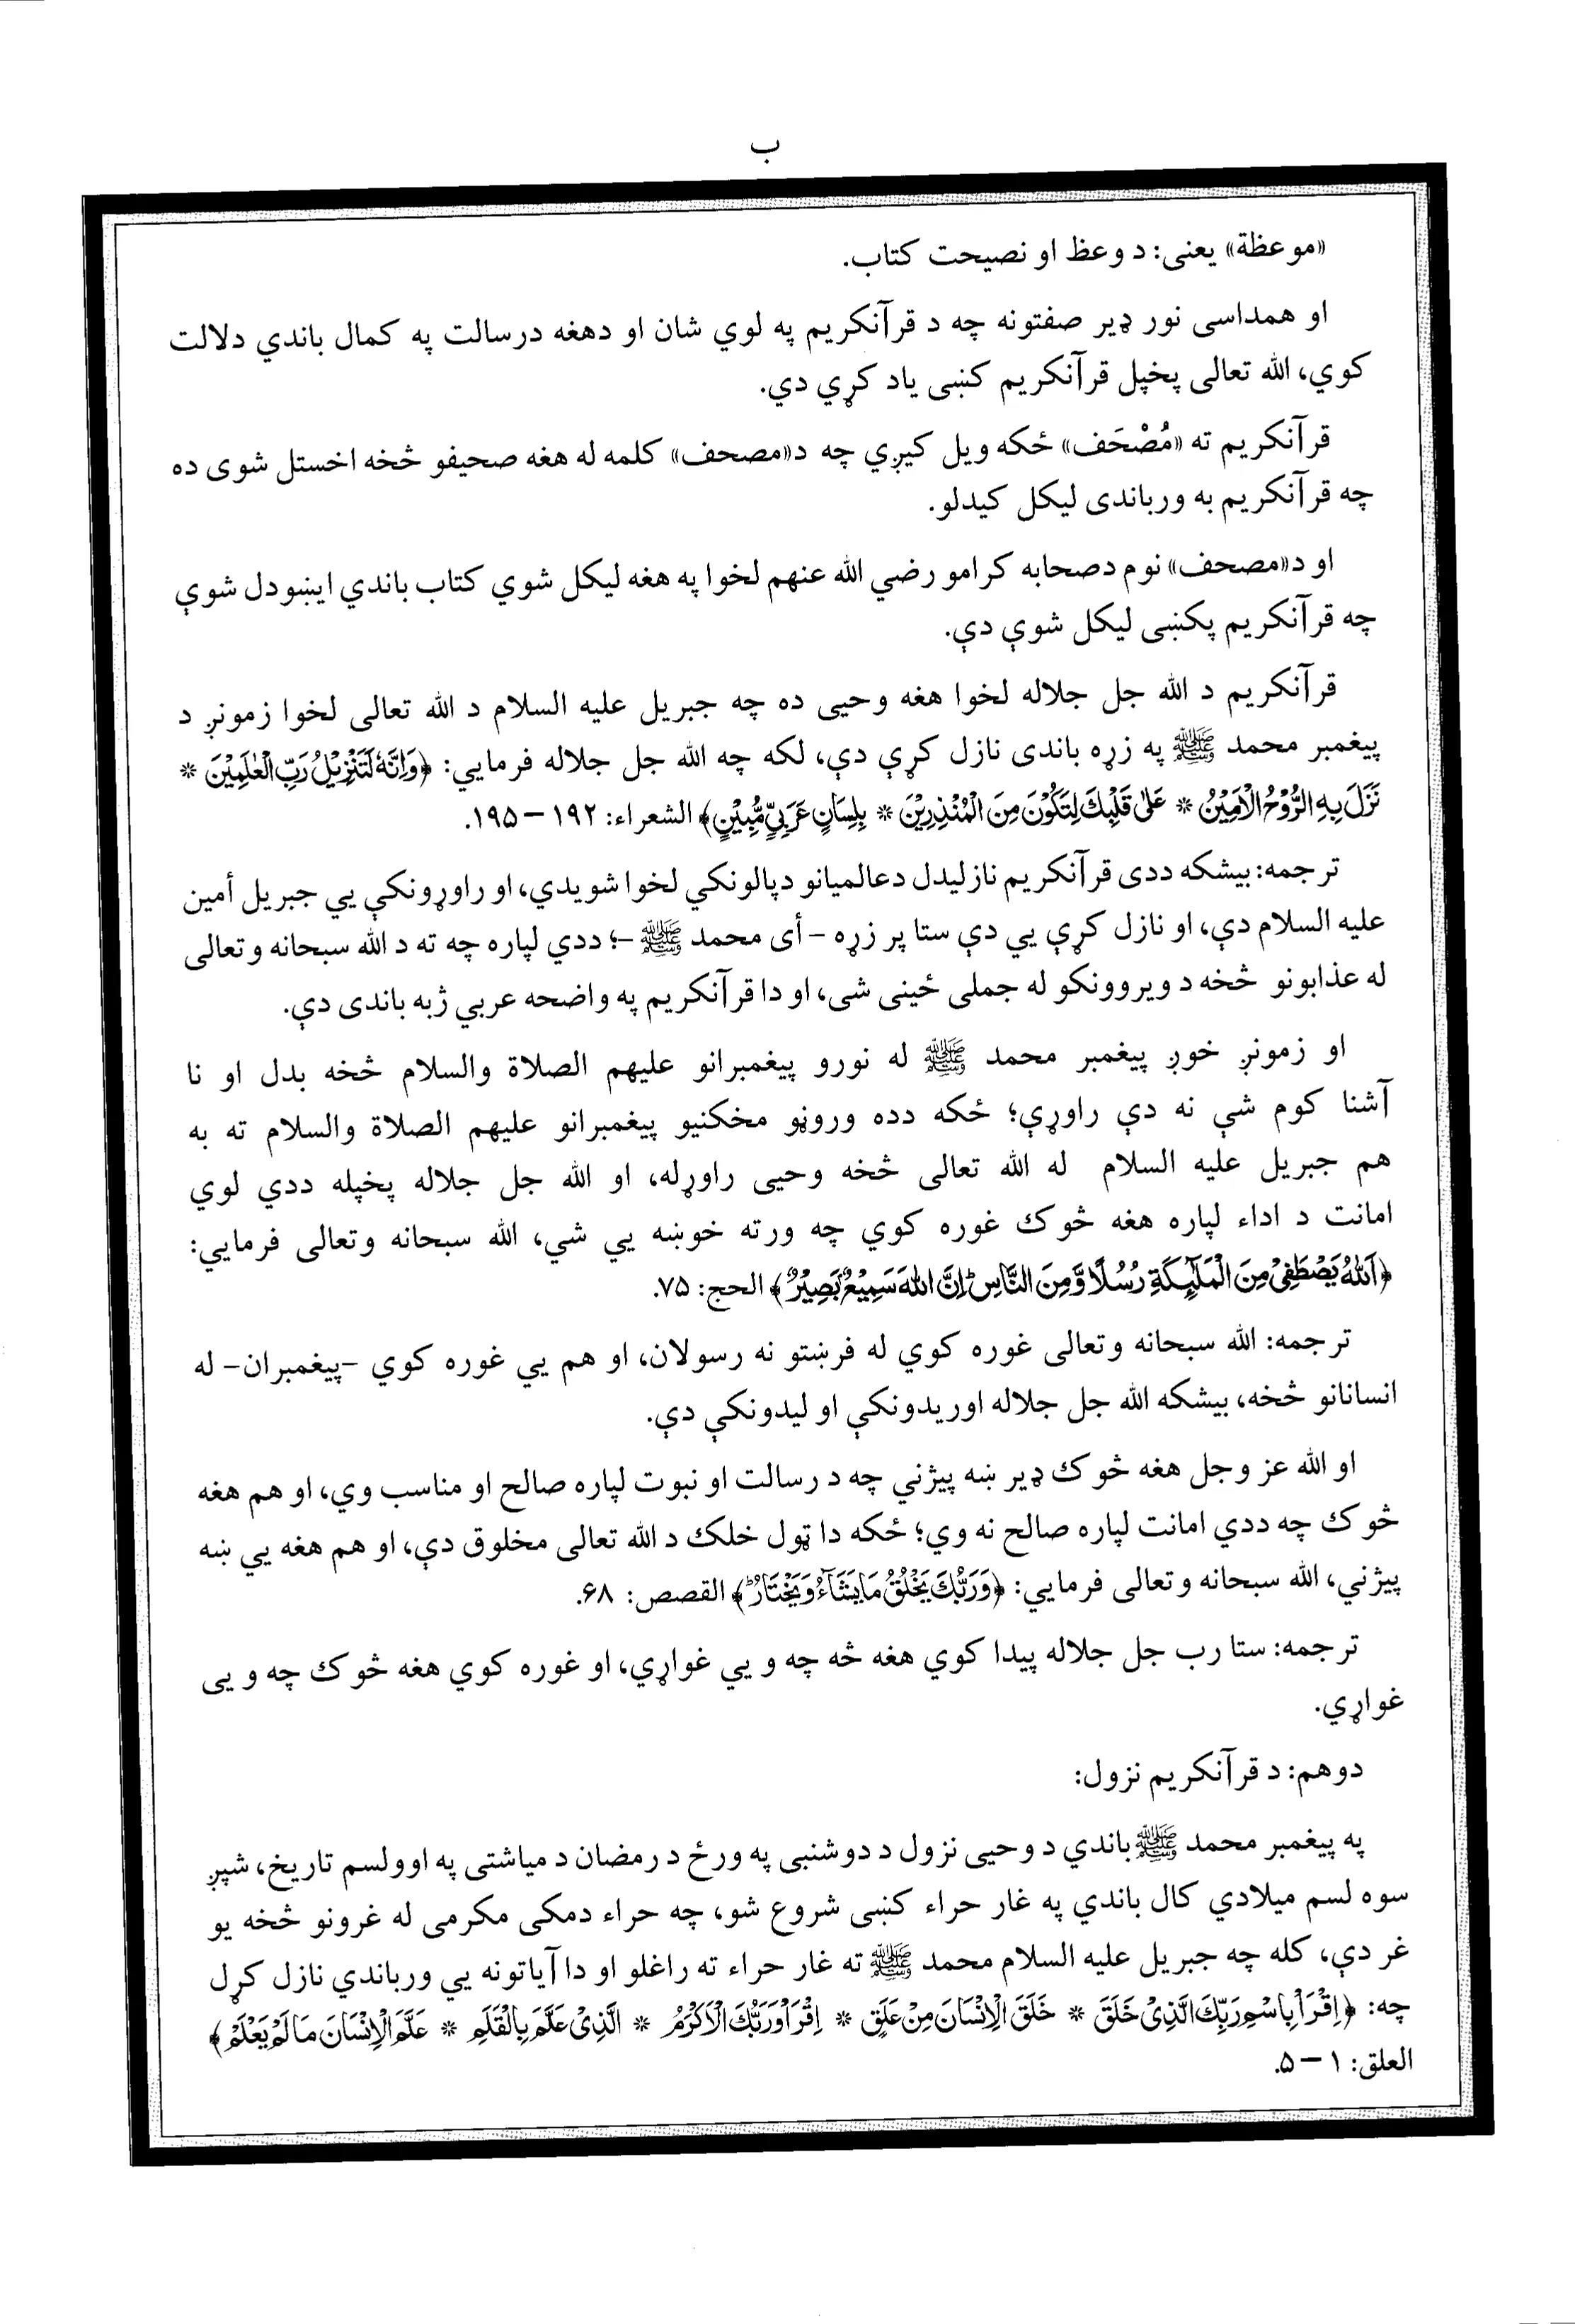 ب
«موعظة» یعنی: د وعظ او نصیحت کتاب.
او همداسی نور ډیر صفتونه چه د قرآنکریم په لوي شان او دهغه درسالت په کمال باندي دلالت
کوي، الله تعالی پخپل قرآنکریم کښی یاد کړي دي.
قرآنکریم ته «مُصْحَف» ځکه ویل کیږي چه د«مصحف» کلمه له هغه صحیفو څخه اخستل شوی ده
چه قرآنکریم به ورباندی لیکل کیدلو.
او د«مصحف» نوم دصحابه کرامو رضي الله عنهم لخوا په هغه لیکل شوي کتاب باندي ایښودل شوې
چه قرآنکریم پکښی لیکل شوې دې.
قرآنکریم د الله جل جلاله لخوا هغه وحیی ده چه جبریل علیه السلام د الله تعالی لخوا زمونږ د
پیغمبر محمد ﷺ په زړه باندی نازل کړې دې، لکه چه الله جل جلاله فرمایي: ﴿وَاِنَّهٗ لَتَنْزِیْلُ رَبِّ الْعٰلَمِیْنَ *
نَزَلَ بِهِ الرُّوْحُ الْاَمِیْنُ * عَلٰی قَلْبِكَ لِتَكُوْنَ مِنَ الْمُنْذِرِیْنَ * بِلِسَانٍ عَرَبِیٍّ مُّبِیْنٍ﴾ الشعراء: ۱۹۲ – ۱۹۵.
ترجمه: بیشکه ددی قرآنکریم نازلیدل دعالمیانو دپالونکي لخوا شویدي، او راوړونکې یي جبریل أمین
علیه السلام دې، او نازل کړې یي دې ستا پر زړه – أی محمد ﷺ –؛ ددي لپاره چه ته د الله سبحانه وتعالی
له عذابونو څخه د ویروونکو له جملی ځینی شی، او دا قرآنکریم په واضحه عربي ژبه باندی دې.
او زمونږ خوږ پیغمبر محمد ﷺ له نورو پیغمبرانو علیهم الصلاة والسلام څخه بدل او نا
آشنا کوم شې نه دې راوړې؛ ځکه دده وروڼو مخکنیو پیغمبرانو علیهم الصلاة والسلام ته به
هم جبریل علیه السلام له الله تعالی څخه وحیی راوړله، او الله جل جلاله پخپله ددي لوي
امانت د اداء لپاره هغه څوک غوره کوي چه ورته خوښه یي شي، الله سبحانه وتعالی فرمایي:
﴿اَللّٰهُ یَصْطَفِیْ مِنَ الْمَلٰٓىِٕكَةِ رُسُلًا وَّمِنَ النَّاسِ ؕ اِنَّ اللّٰهَ سَمِیْعٌۢ بَصِیْرٌ﴾ الحج: ۷۵.
ترجمه: الله سبحانه وتعالی غوره کوي له فرښتو نه رسولان، او هم یي غوره کوي –پیغمبران– له
انسانانو څخه، بیشکه الله جل جلاله اوریدونکې او لیدونکې دې.
او الله عز وجل هغه څوک ډیر ښه پیژني چه د رسالت او نبوت لپاره صالح او مناسب وي، او هم هغه
څوک چه ددي امانت لپاره صالح نه وي؛ ځکه دا ټول خلک د الله تعالی مخلوق دې، او هم هغه یي ښه
پیژني، الله سبحانه وتعالی فرمایي: ﴿وَرَبُّكَ یَخْلُقُ مَا یَشَآءُ وَیَخْتَارُ ؕ﴾ القصص: ۶۸.
ترجمه: ستا رب جل جلاله پیدا کوي هغه څه چه و یي غواړي، او غوره کوي هغه څوک چه و یی
غواړي.
دوهم: د قرآنکریم نزول:
په پیغمبر محمد ﷺ باندي د وحیی نزول د دوشنبی په ورځ د رمضان د میاشتی په اوولسم تاریخ، شپږ
سوه لسم میلادي کال باندي په غار حراء کښی شروع شو، چه حراء دمکی مکرمی له غرونو څخه یو
غر دې، کله چه جبریل علیه السلام محمد ﷺ ته غار حراء ته راغلو او دا آیاتونه یي ورباندي نازل کړل
چه: ﴿اِقْرَاْ بِاسْمِ رَبِّكَ الَّذِیْ خَلَقَ * خَلَقَ الْاِنْسَانَ مِنْ عَلَقٍ * اِقْرَاْ وَرَبُّكَ الْاَكْرَمُ * الَّذِیْ عَلَّمَ بِالْقَلَمِ * عَلَّمَ الْاِنْسَانَ مَا لَمْ یَعْلَمْ﴾
العلق: ۱ – ۵.